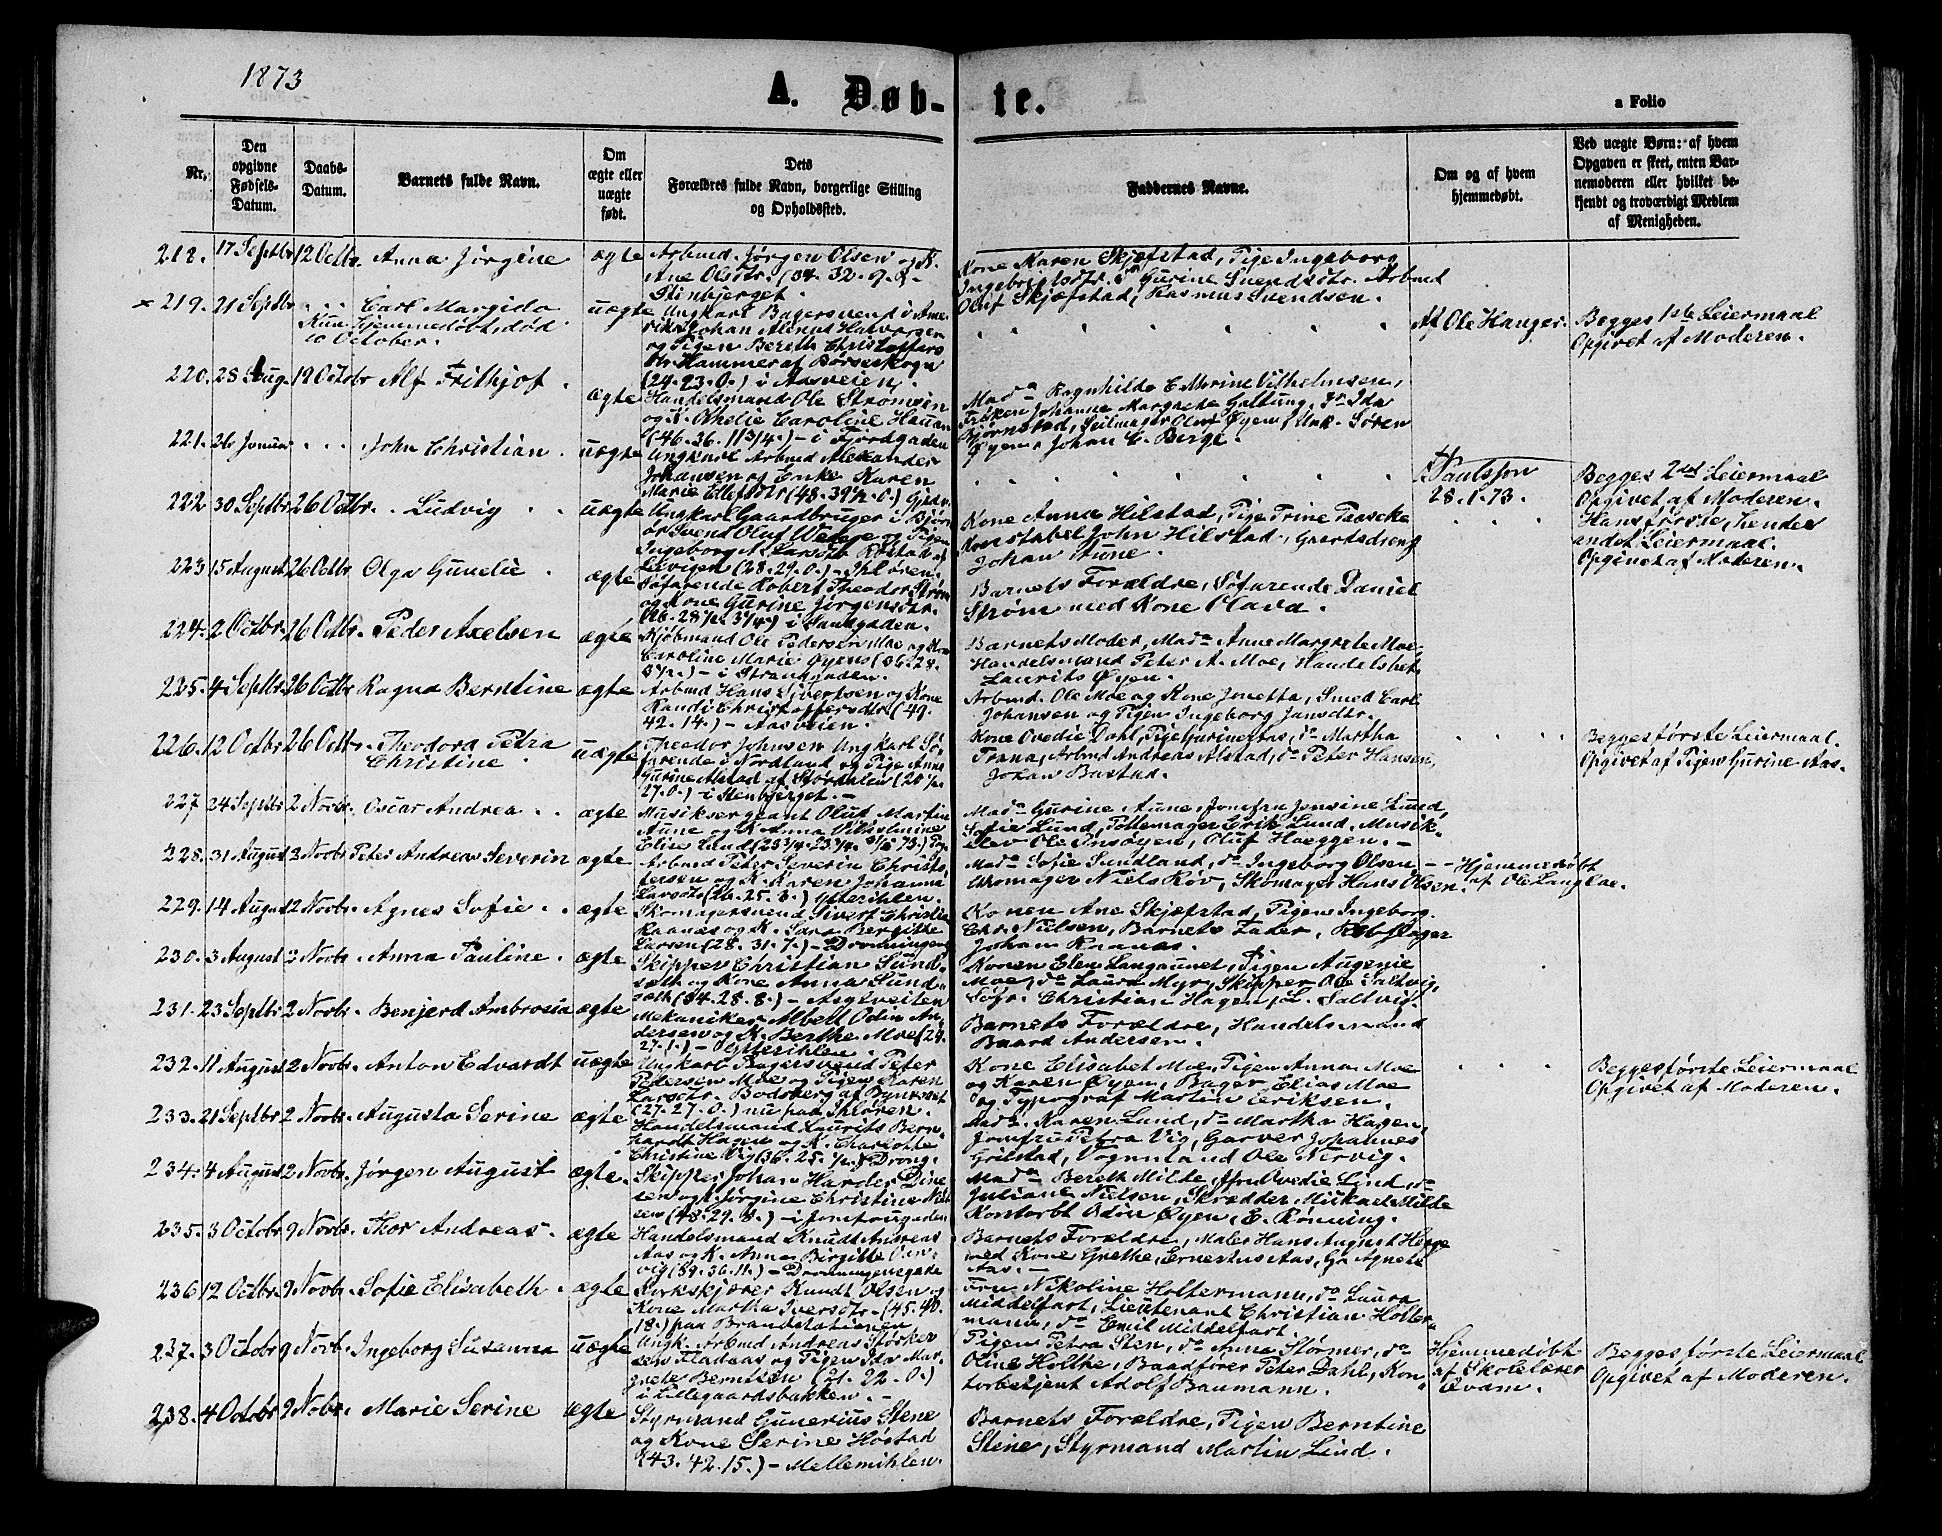 1873
A. Døb-
te.
a Folio
Nr.
Den opgivne Fødsels-Datum.
Daabs-Datum.
Barnets fulde Navn.
Om ægte eller uægte født.
Dets Forældres fulde Navn, borgerlige Stilling og Opholdssted.
Faddernes Navne.
Om og af hvem hjemmedøbt.
Ved uægte Børn: af hvem Opgaven er skeet, enten Barnemoderen eller hvilket bekjendt og troværdigt Medlem af Menigheden.
218. 17 Septbr 12 Octbr. Anna Jørgine ægte Arbmd. Jørgen Olsen og K.
Ane Olsdtr. (34. 32. 9.
Stenbjerget.
Kone Karen Skjefstad, Pige Ingeborg
Ingebrigtsdtr. Gurine Svendsdtr. Arbmd
Oluf Skjefstad, Rasmus Svendsen.
× 219. 21 Septbr Carl Margido uægte
Kun Hjemmedøbt, død
10 October.
Ungkarl Bagersvend i Ame-
rika Johan Alenus Halvorsen
og Pigen Bereth Christoffers
dtr. Hammer af Børseskogn
(24. 23. 0.) i Aasveien.
Af Ole Hauger.
Begges 1ste Leiermaal
Opgivet af Moderen.
220. 28 Aug. 12 Octobr Alf Frithjof. ægte
Handelsmand Ole Strømsen
og K. Othelie Caroline Hauan
(46. 26. 11 3/4.) - i Fjordgaden
Mad. Ragnhilde E. Marine Vilhelmsen,
Frøken Johanne Margrete Galtung, Ida
Bjørnstad, Seilmager Oluf Øyen, Unk. Søren
Øyen, Johan C. Berge.
221. 26 Januar John Christian. uægte
Ungkarl Arbmd Alexander
Johansen og Enke Karen
Marie Ellefsdtr (48. 39 1/2. 0.)
Paulsson
28.1.73.
Begges 2det Leiermaal
Opgivet af Moderen.
222 30 Septbr. 26 Octbr. Ludvig uægte
Ungkarl Gaardbruger i Bjør-
ør Svend Oluf Wehye og Pigen
Ingeborg A. Larsdtr Røstad af
Levigen (28. 29. 0.) - Ihl Øren,
Kone Anna Hilstad, Pige Trine Paascke
Konstabel John Hilstad, Gaardsdreng
Johan Aune.
Hans første, hendes
andet Leiermaal.
Opgivet af Moderen.
223 15 August 26 Octbr. Olga Gunelie. ægte
Søfarende Robert Theodor Strøm
og Kone Gurine Jørgensdtr.
(26. 28 1/2. 3 1/4.) i Sandgaden.
Barnets Forældre, Søfarende Daniel
Strøm med Kone Olava.
224. 2 Octbr. 26 Octbr. Peder Axelsen ægte
Kjøbmand Ole Pedersen Moe og Kone
Caroline Marie Øyens (36. 28.
8 1/2.) - i Strandgaden.
Barnets Moder, Mad. Anne Margrete Moe,
Handelsmand Peter A. Moe, Handelsbet.
Laurits Øyen.
225. 4 Septbr. 26 Octbr Ragna Berntine ægte
Arbmd Hans Sivertsen og Kone
Randi Christoffersdtr. (49.
42. 14.) - Aasveien.
Arbmd. Ole Moe og Kone Jonetta, Smed Carl
Johansen og Pigen Ingeborg Jansdtr.
226. 12 Octbr 26 Octbr. Theodora Petra uægte
Christine
Theodor Johnsen Ungkarl Sø-
farende i Nordland og Pige Anne
Gurine Alstad af Størdalen (20 1/2.
27. 0.) i Stenbjerget. -
Kone Ovedie Dahl, Pige Gurine Aas, do Martha
Trana, Arbmd Andreas Alstad, do Peter Hansen,
Johan Bastad.
Begges første Leiermaal.
Opgivet af Pigen Gurine Aas.
227 24 Septbr 2 Novbr. Oscar Andrea. ægte
Musiksergeant Oluf Martin
Aune og K. Anna Vilhelmine
Elise Lund (23 3/4. 23 1/4.
Mad. Gurine Aune, Jomfru Jensine Lund,
Sofie Lund, Pottemager Erik Lund, Musik-
elev Ole Insøyen, Oluf Hoeggen. -
228. 31 August 2 Novbr. Peter Andreas Severin ægte
Arbmd Peter Severin Christof-
fersen og K. Karen Johanna
Larsdtr (26. 25. 3.) Ytterihlen.
Mad. Sofie Sundland, do Ingeborg Olsen, -
Uhrmager Niels Røv, Skomager Hans Olsen.
Hjemmedøbt
af Ole Langlae.
229. 14 August 2 Novbr. Agnes Sofie. ægte
Skomagersvend Sivert Christia
Raanæs og K. Sara Bergitte
Larsen (28. 31. 7.) - Dronningeng
Konen Ane Skjefstad, Pigen Ingeborg
Chr. Nielsen, Barnets Fader, Rebslager
Johan Raanæs.
230. 3 August 2 Novbr. Anna Pauline. ægte
Skipper Christian Sund-
seth og Kone Anna Sund-
seth (34. 28. 8.) - Asylveiten
Konen Elen Langaunet, Pigen Augenie
Moe, do Laura Myr, Skipper Ole Saltvig,
Søfr. Christian Hagen, L. Saltvig.
231. 23 Septbr 2 Novbr. Benjerd Ambrosia ægte
Mekaniker Albert Odin An-
dersen og K. Berthe Moe (24.
27. 1.) - Ytterihlen.
Barnets Forældre, Handelsmand
Baard Andersen.
232. 11 August 2 Novbr. Anton Edvardt uægte
Ungkarl Bagersvend Peter
Pedersen Moe og Pigen Karen
Larsdtr. Bodsberg af Bynesset
(27. 27. 0.) nu paa Ihløren.
Kone Elisabet Moe, Pigen Anna Moe
og Karen Øyen, Bager Elias Moe
og Typograf Martin Eriksen.
Begges første Leiermaal
Opgivet af Moderen.
233. 21 Septbr 2 Novbr. Augusta Serine ægte
Handelsmand Laurits Bern-
hardt Hagen og K. Charlotte
Christine Vig (36. 25. 1/2.) Drong.
Mad. Karen Lund, do Martha Hagen,
Jomfru Petra Vig, Garver Johannes
Grilstad, Vognmand Ole Nervig.
234. 4 August 2 Novbr. Jørgen August ægte.
Skipper Johan Harder Dine
sen og K. Jørgine Christine Niel
sen (48. 29. 8.) - i Jomfrugaden
Mad. Bereth Milde, Jfru Ovedie Lind, do
Juliane Nielsen, Skrædder Mikael Milde
Kontorbt Odin Øyen, E. Rønning.
235. 3 Octobr 9 Novbr. Thor Andreas. ægte
Handelsmand Knudt Andreas
Aas og K. Anna Birgitte Oun-
vig (39. 36. 11.) - Dronningensgade
Barnets Forældre, Maler Hans August Hegge
med Kone Grethe, Ernestus Aas, Agnete
Aas. -
236 12 Octbr. 9 Novbr. Sofie Elisabeth. ægte
Korkskjærer Knudt Olsen og
Kone Martha Iversdtr. (45. 40.
18.) paa Brandstationen
Fru Nikoline Holtermann, do Laura
Middelfart, Lieutenant Christian Holter-
mann, do Emil Middelfart.
237. 3 Octobr 9 Novbr. Ingeborg Susanna uægte
Ungk. Arbmd Andreas Størker
sen Fladaas og Pigen Ida Mar-
grete Berntsen (21. 22. 0.)
i Lillegaardsbakken. -
Pigen Petra Sten, do Anna Størmer, do
Oline Holtke, Baadfører Peter Dahl, Kon-
torbetjent Adolf Baumann.
Hjemmedøbt
af Skolelærer
Qvam.
Begges første Leiermaal
Opgivet af Moderen.
238. 4 Octobr 9 Nobr. Marie Serine ægte
Styrmand Gunerius Stene
og Kone Serine Høstad
(43. 42. 15.) - Mellemihlen.
Barnets Forældre, Pigen Berntine
Stene, Styrmand Martin Lind.